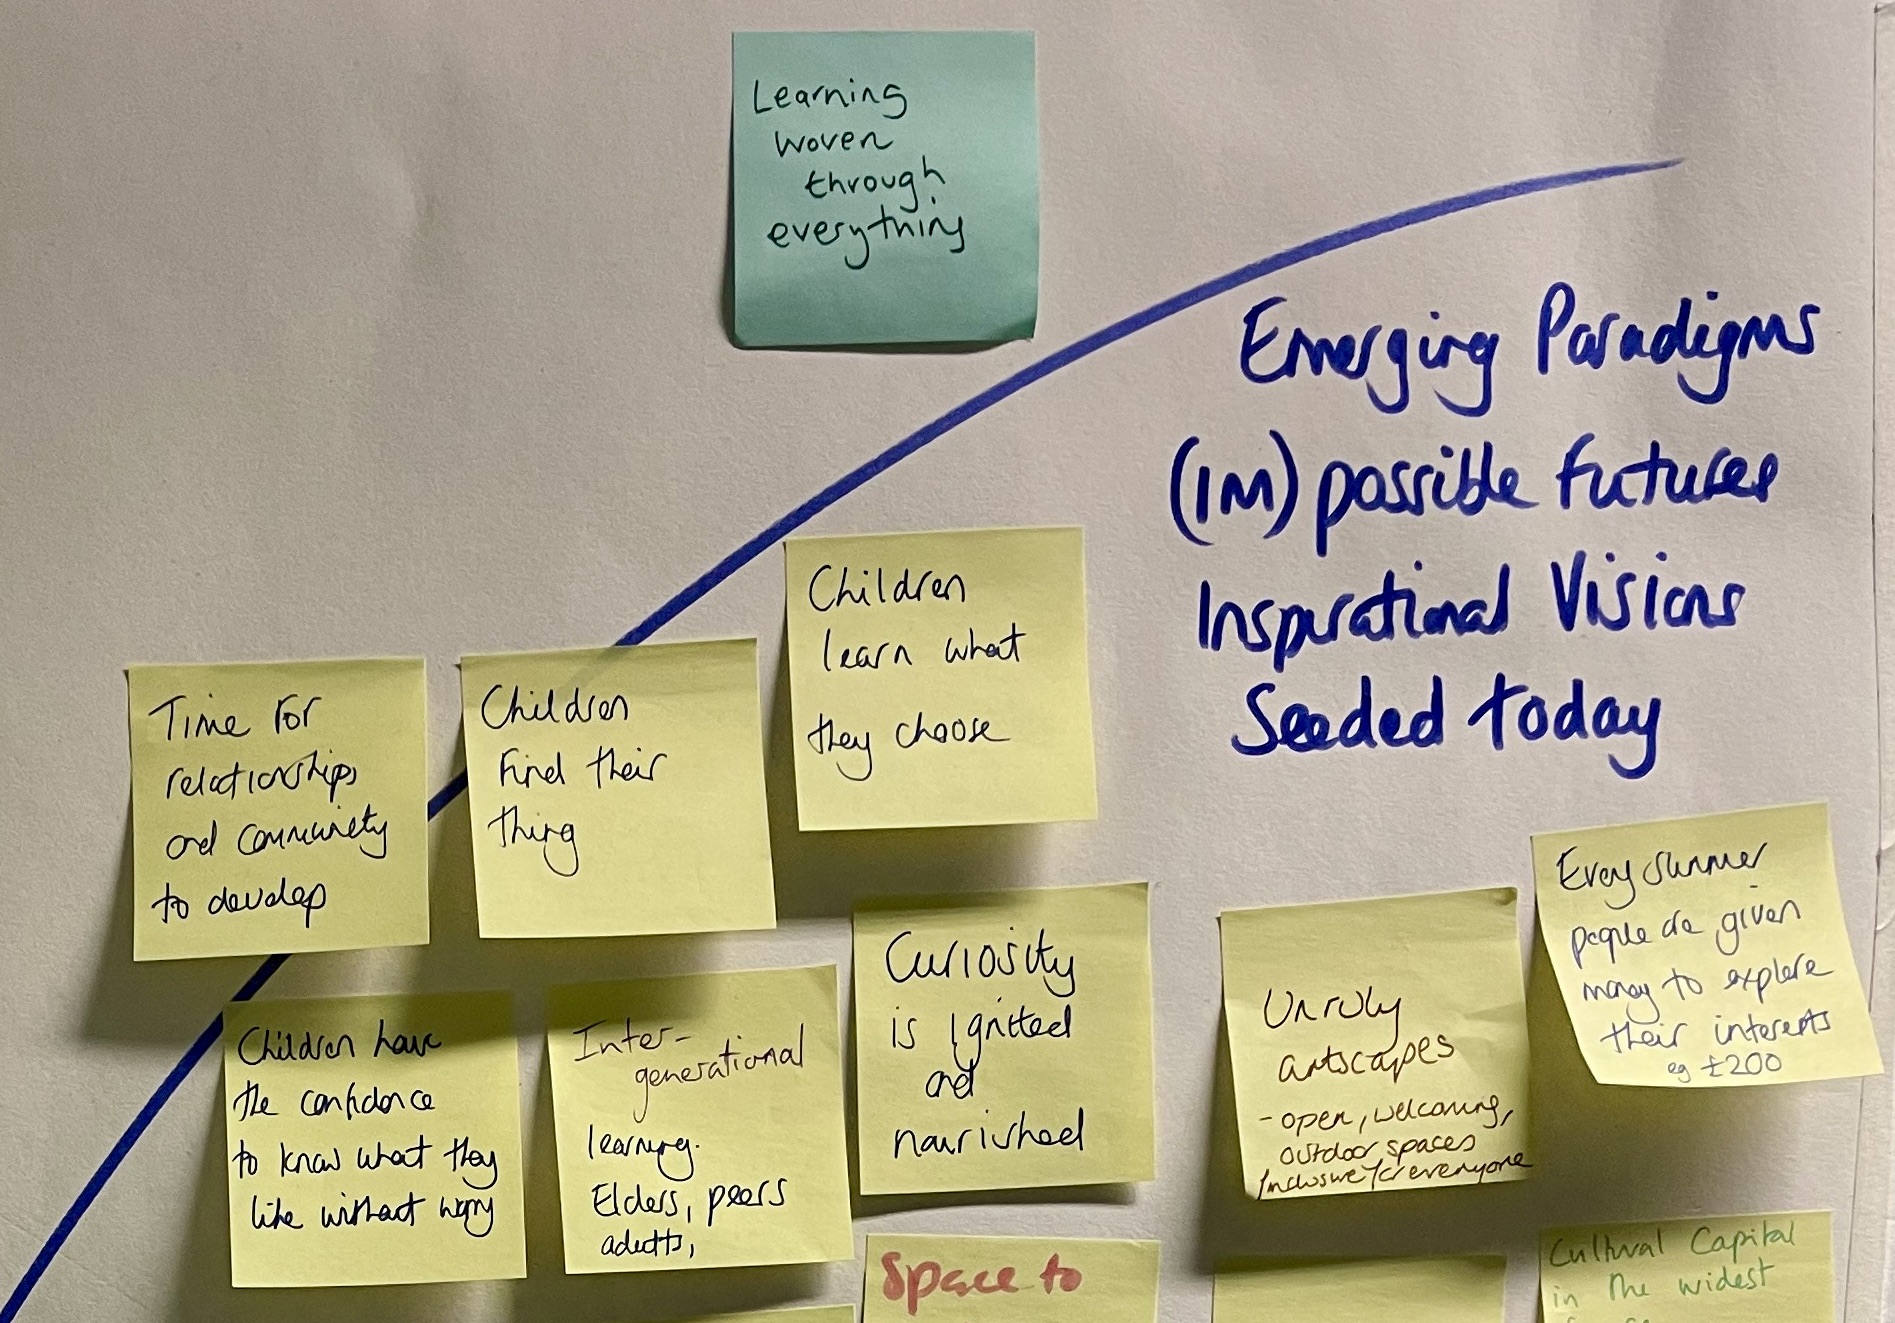 Learning
woven
through
everything
Emerging Paradigms
(IM)possible futures
Inspirational Visions
Seeded today
Time for
relationships
and community
to develop
Children
Find their
thing
Children
learn what
they choose
Children have
the confidence
to know what they
like without worry
Inter-
generational
learning.
Elders, peers
adults,
Curiosity
is Ignited
and
nourished
Unruly
artscapes
- open, welcoming,
outdoor spaces
Inclusive/for everyone
Every summer
people are given
money to explore
their interests
eg £200
Space to
Cultural Capital
in the widest